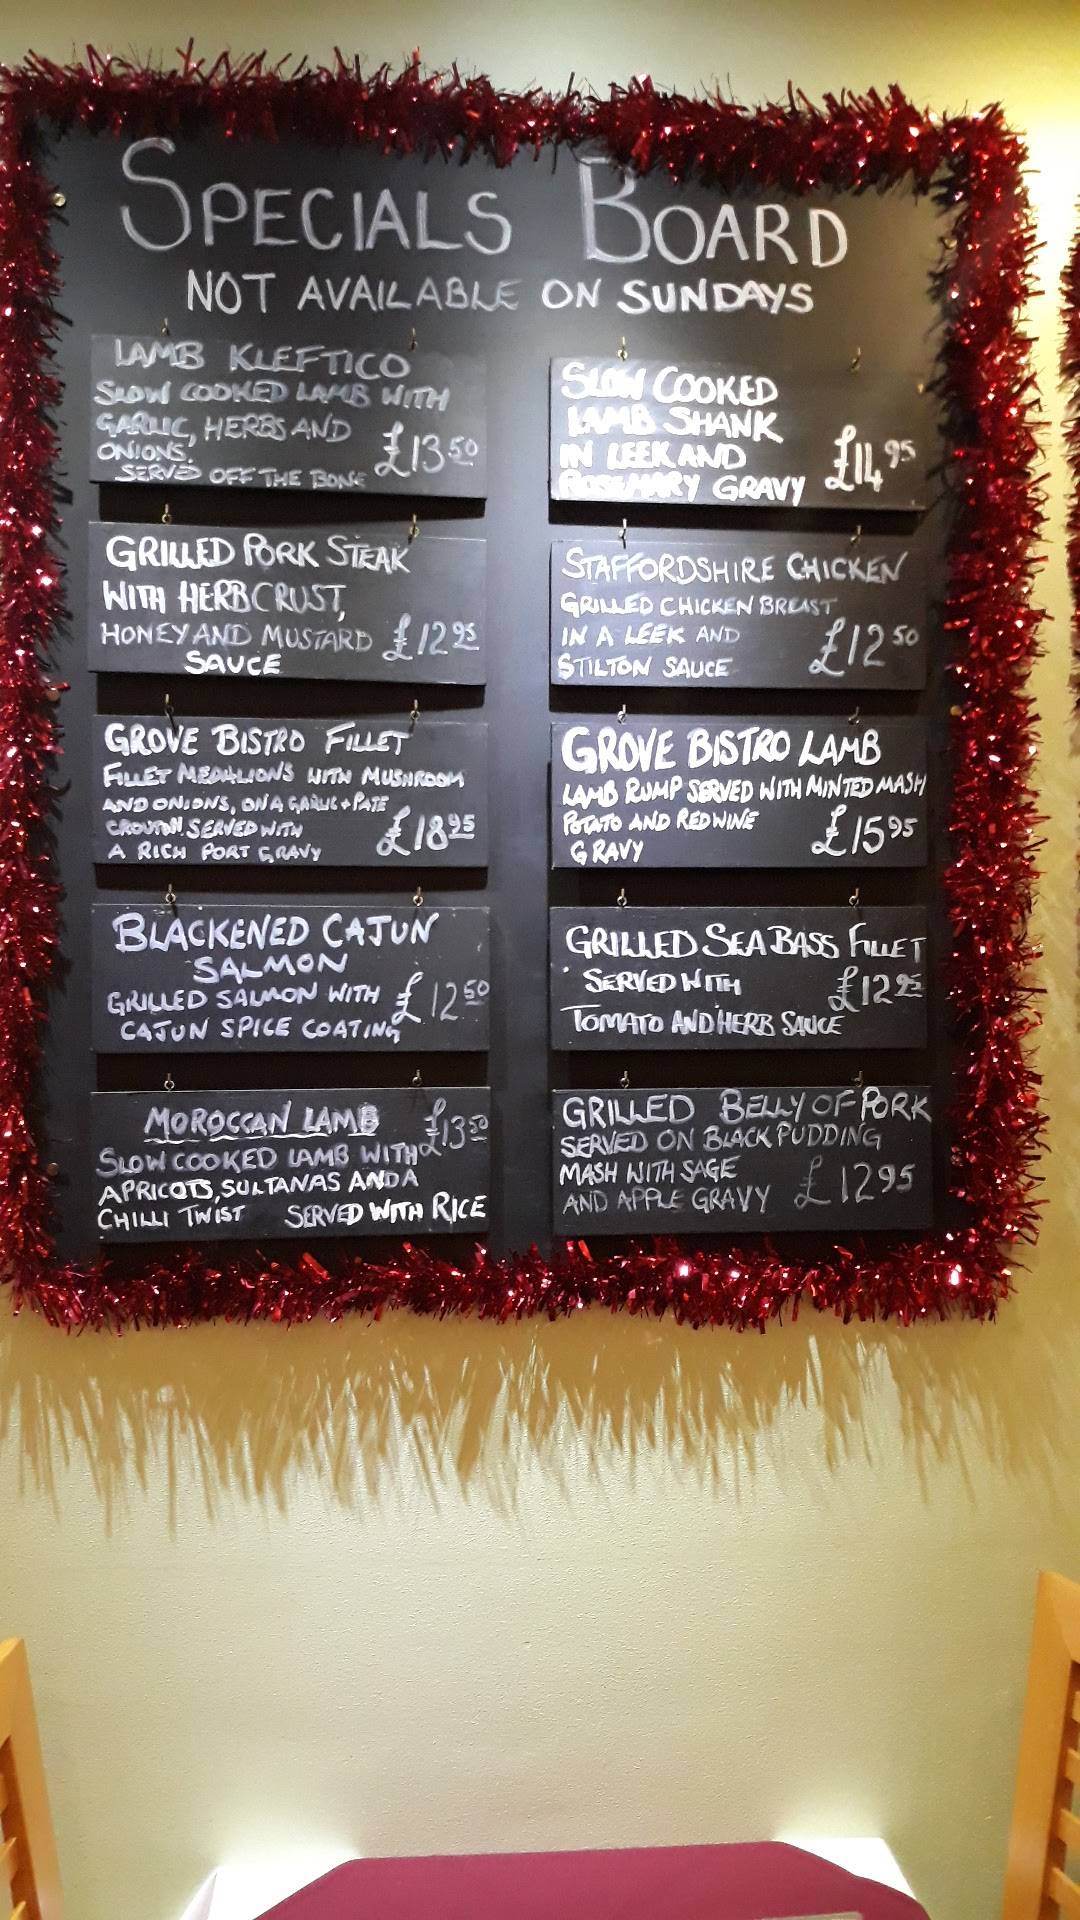 SPECIALS BOARD
NOT AVAILABLE ON SUNDAYS
LAMB KLEFTICO
SLOW COOKED LAMB WITH
GARLIC, HERBS AND
ONIONS.
SERVED OFF THE BONE
£13.50
GRILLED PORK STEAK
WITH HERB CRUST,
HONEY AND MUSTARD £12.95
SAUCE
GROVE BISTRO FILLET
FILLET MEDALIONS WITH MUSHROOM
AND ONIONS, ON A GARLIC + PATE
CROUTON SERVED WITH
A RICH PORT GRAVY
£18.95
BLACKENED CAJUN
SALMON
GRILLED SALMON WITH £12.50
CAJUN SPICE COATING
MOROCCAN LAMB £13.50
SLOW COOKED LAMB WITH
APRICOTS, SULTANAS AND A
CHILLI TWIST SERVED WITH RICE
SLOW COOKED
LAMB SHANK
IN LEEK AND
ROSEMARY GRAVY
£14.95
STAFFORDSHIRE CHICKEN
GRILLED CHICKEN BREAST
IN A LEEK AND
STILTON SAUCE
£12.50
GROVE BISTRO LAMB
LAMB RUMP SERVED WITH MINTED MASH
POTATO AND RED WINE
GRAVY
£15.95
GRILLED SEA BASS FILLET
SERVED WITH £12.95
TOMATO AND HERB SAUCE
GRILLED BELLY OF PORK
SERVED ON BLACK PUDDING
MASH WITH SAGE
AND APPLE GRAVY £12.95